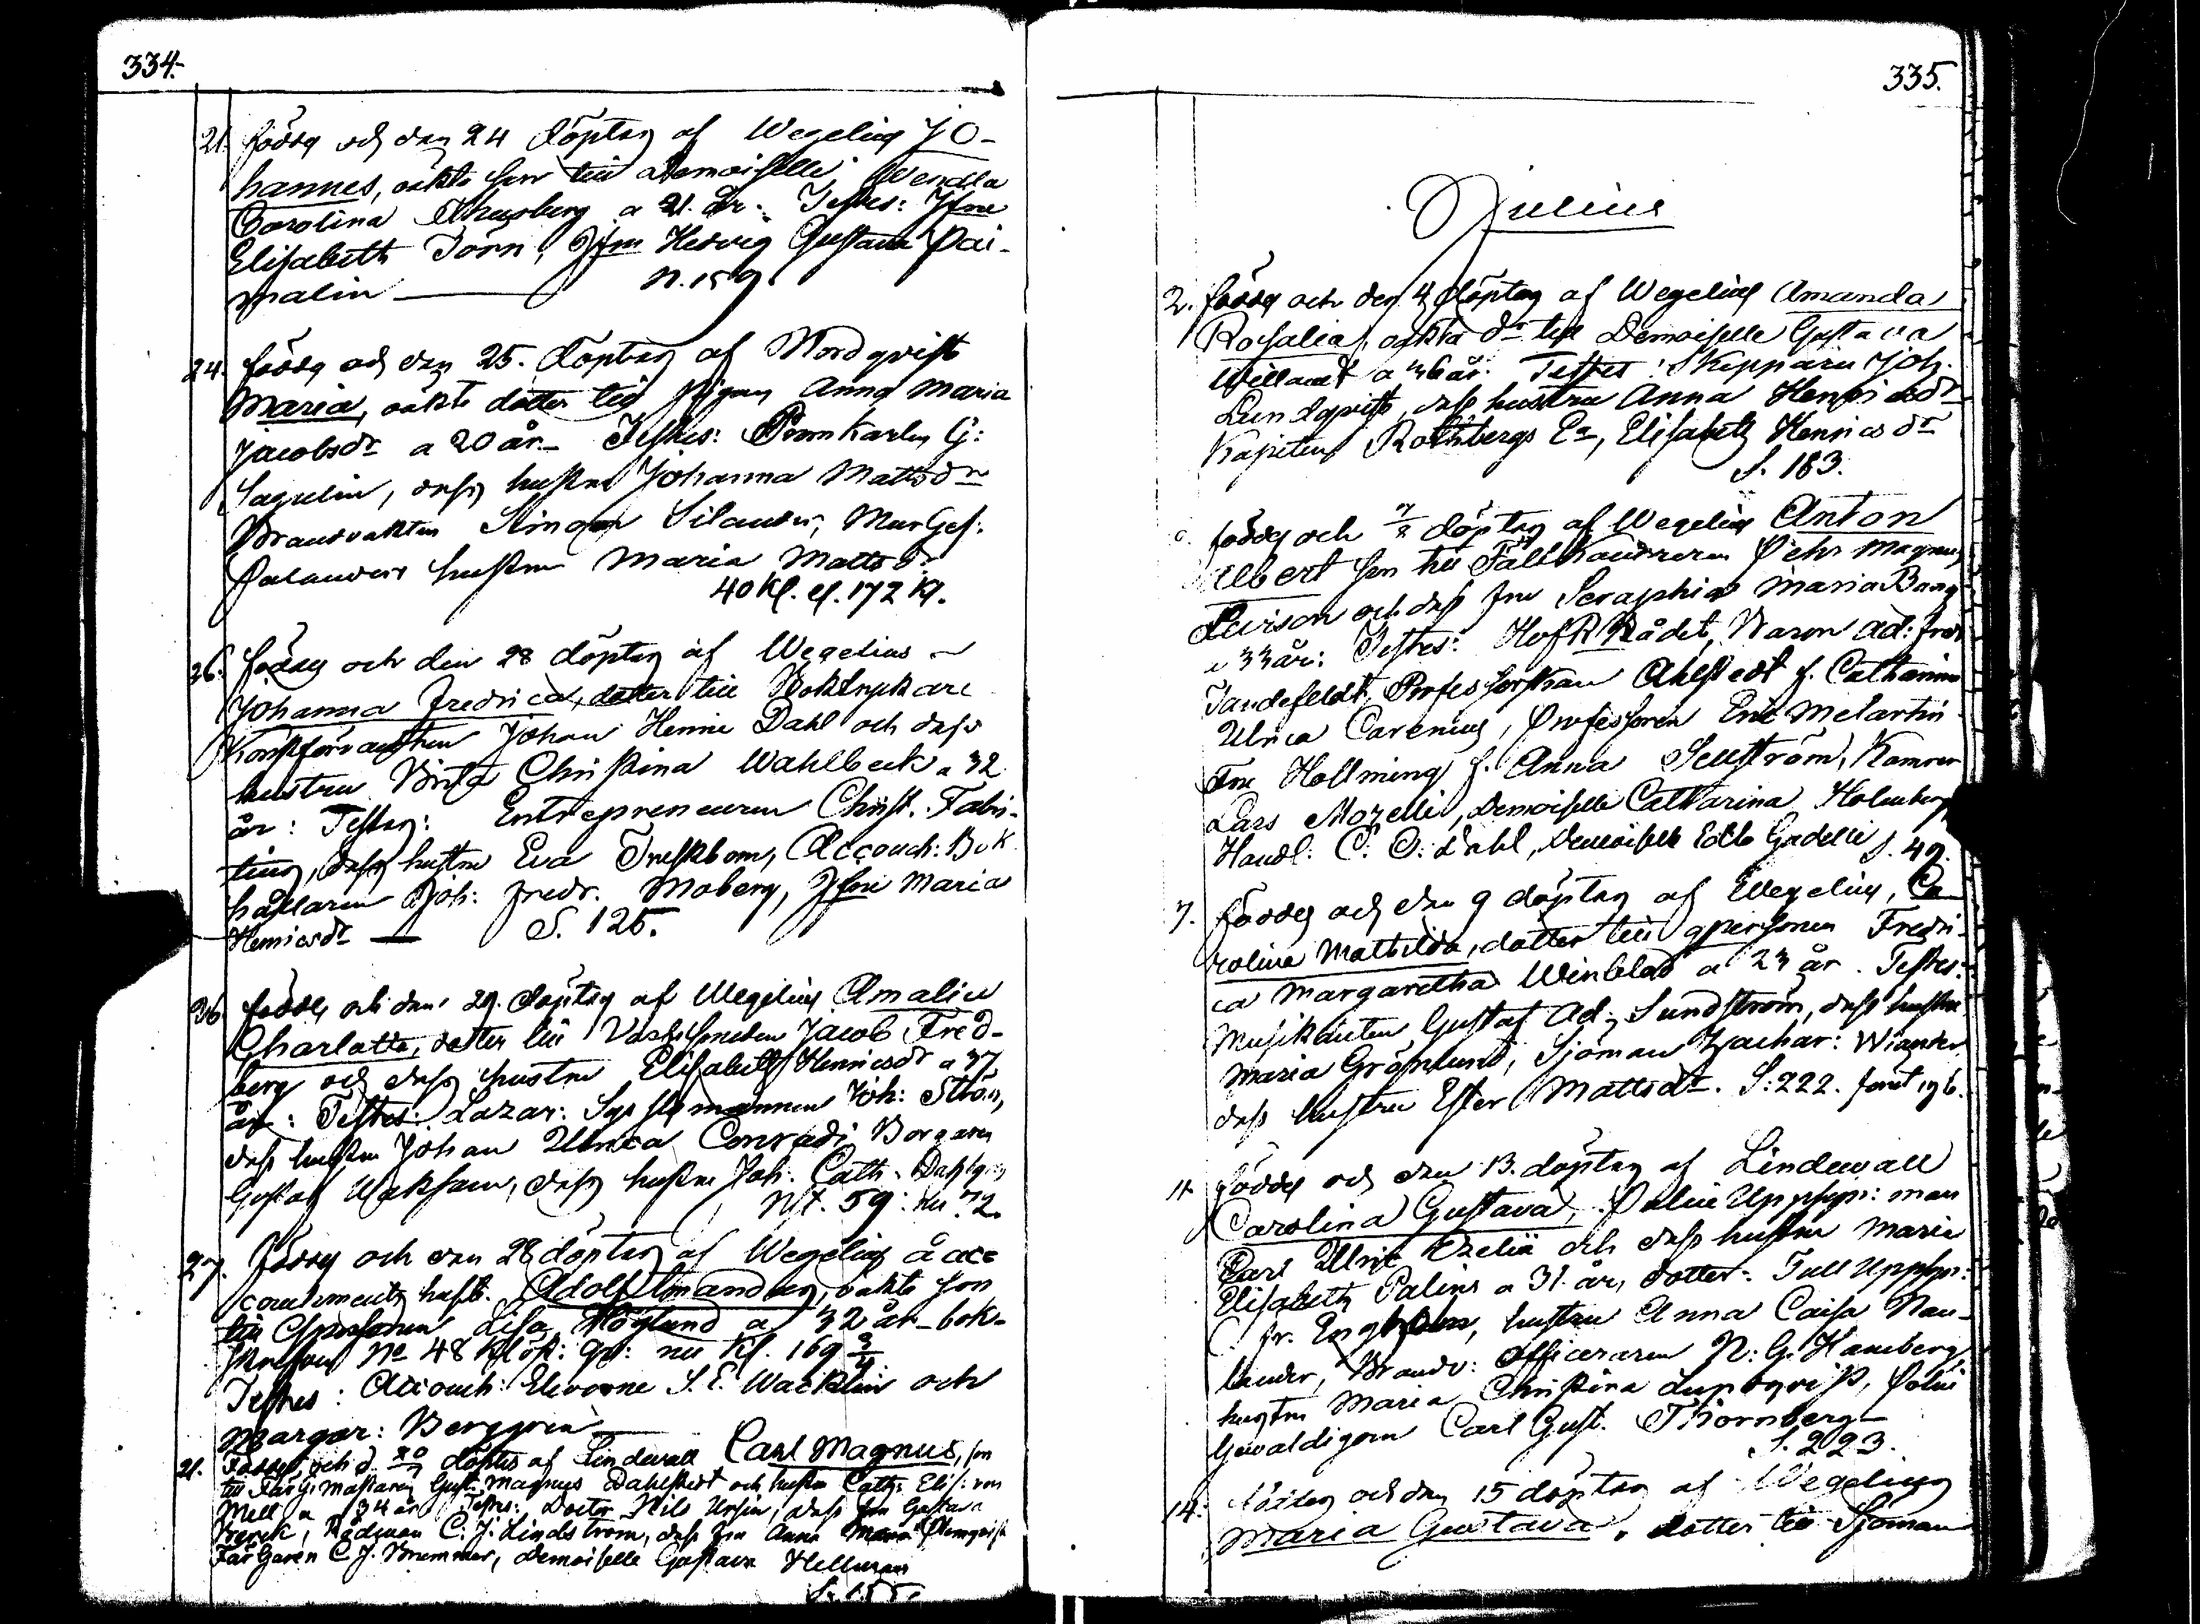 334.
21. föddes och den 24 döptes af Wegelius Jo-
hannes, oäkta son till Demoiselle Wendla
Carolina a 21. år. Testes: Jfru
Elisabeth Törn, Jfru Hedvig Gustava Pai-
malin — N. 159.
24. föddes och den 25. döptes af Nordqvist
Maria, oäkta dotter till pigan Anna Maria
Jacobsdr a 20 år. Testes: Promkarlen G:
Sagulin, dess hustru Johanna Mattsdr
Brandvakten Silander, Mur Ges:
Palanders hustru Maria Mattsdr
40 Kl. el. 172 Kl.
26. föddes och den 28 döptes af Wegelius
Johanna Fredrica, dotter till Boktryckare
Konstförvandten Johan Henric Dahl och dess
hustru Brita Christina Wahlbeck a 32
år: Testes: Entrepreneuren Christ. Fabri-
tius, dess hustru Eva Friskbom, Accouch: Bok
hållaren Joh: Fredr. Moberg, Jfru Maria
Henricsdr — S. 125.
26 föddes och den 29. döptes af Wegelius Amalia
Charlotta, dotter till Jacob Fred-
berg och dess hustru Elisabeth Henricsdr a 37
år: Testes: Lazar: Sysslomannen Joh: Ström,
dess hustru Johan Ulrica Conradi, Borgaren
Gustaf, dess hustru Joh: Cath: Dahlgren
Nt. 59: nu 72.
27. föddes och den 28 döptes af Wegelius å acc
couchments huset. Adolf Amandus, oäkta son
till Qpersonen Lisa Höglund a 32 år — bok-
skrifven No 48 Klöst: Qv: nu Kl. 169 3/4
Testes: Accouch: Eleverne S. E. Wacklin och
Margar: Berggren
21. Föddes och d. döptes af Lindewall Carl Magnus, son
till Färg: mästaren Gust. Magnus Dahlstedt och hustru Cath: Elis: von
Mell a 34 år Testes: Doctor Nils Ursin, dess fru Gustava
Rådman C. J. Lindström, dess fru Anna Maria
Färgaren C J. Brummer, Demoiselle Gustava Hellman
S. 155.
335.
Julius
2. föddes och den 4 döptes af Wegelius Amanda
Rosalia, oäkta dr till Demoiselle Gustava
a 36 år. Testes: Skepparen Joh.
Lundqvist, dess hustru Anna Henricsdr
Kapiten Rothbergs Ea, Elisabeth Henricsdr
S. 183.
föddes och döptes af Wegelius Anton
Albert son till Fältkamreraren Pehr Magnus
Levison och dess fru Seraphia Maria Bang
a 33 år: Testes: Hof R Rådet, Baron Ad: Fredr
Tandefeldt, Professorskan Ahlstedt f. Catharina
Ulrica Carenius, Professoren Eric Melartin
Fru Hollming f. Anna Sellström, Kamrer
Lars Mozelli, Demoiselle Catharina Holmberg
Handl: C. O. Dahl, Demoiselle Edla Gadelli S. 49.
7. föddes och den 9 döptes af Wegelius, Ca
rolina Mathilda, dotter till qpersonen Fredri-
ca Margaretha Winblad a 23 år. Testes:
Musikanten Gustaf Ad: Sundström, dess hustru
Maria Grönlund, Sjöman Zachar: Wiander
dess hustru Ester Mattsdr. S: 222. förut 196.
11. föddes och den 13. döptes af Lindewall
Carolina Gustava, Police Uppsyn: man
Carl Ulric och dess hustru Maria
Elisabeth Palins a 31 år, dotter. Tull Uppsyn:
fr. Engblom, hustru Anna Caisa Nau-
lander, Brandv: Officeraren N: G. Hamberg
hustru Maria Christina Lundqvist, Polis
Gevaldigern Carl Gust. Thornberg —
S. 223.
14. föddes och den 15 döptes af Wegelius
Maria Gustava, dotter till Sjöman